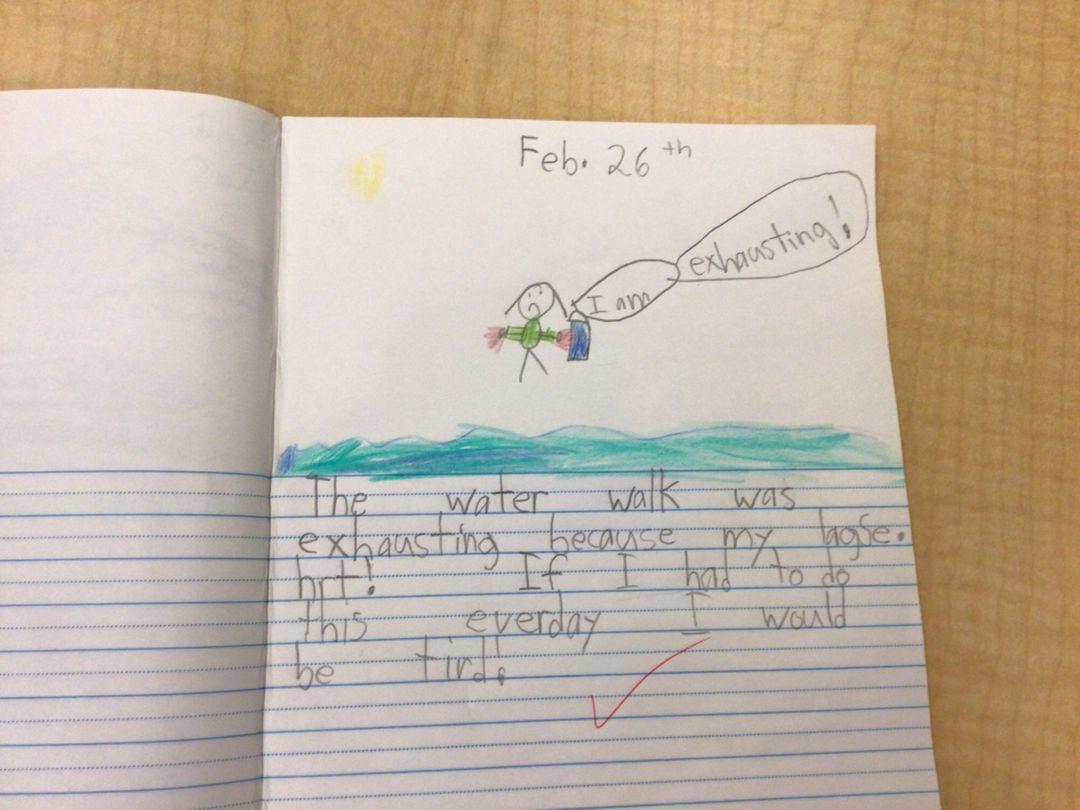 Feb. 26th
I am
exhausting!
The water walk was
exhausting because my lagse.
hrt! If I had to do
this everday I would
be tird!